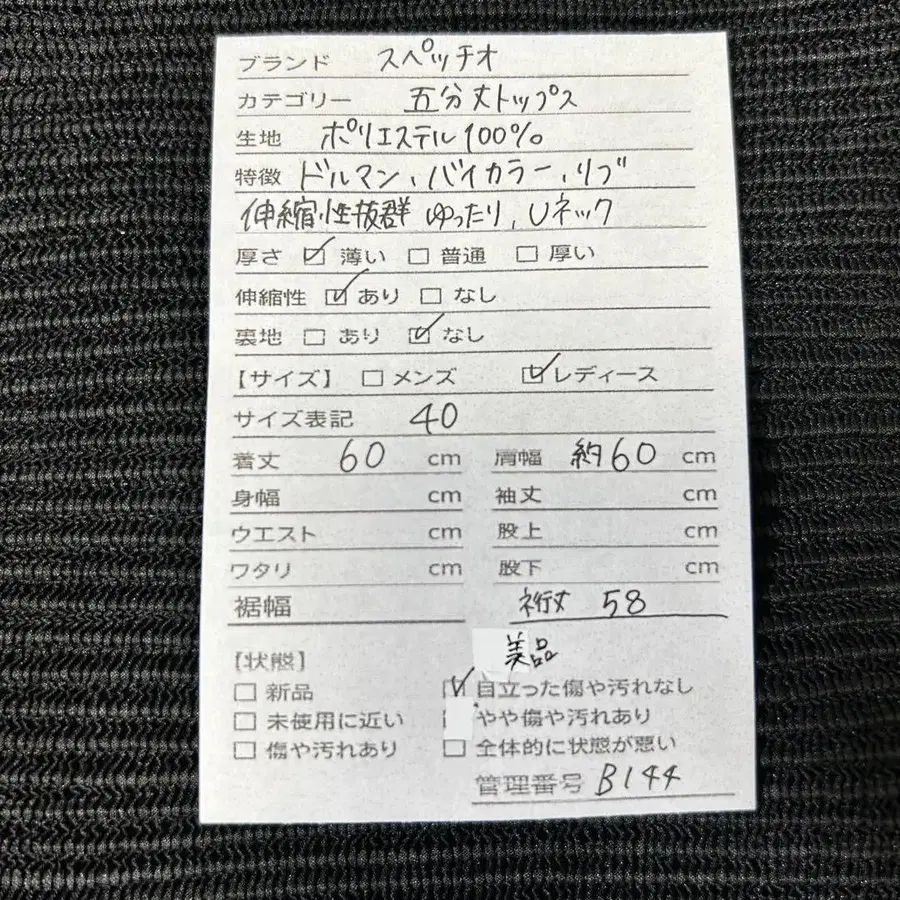 ブランド スペッチオ
カテゴリー 五分丈トップス
生地 ポリエステル100%
特徴 ドルマン、バイカラー、リブ
伸縮性抜群 ゆったり、Uネック
厚さ ☑ 薄い ☐ 普通 ☐ 厚い
伸縮性 ☑ あり ☐ なし
裏地 ☐ あり ☑ なし
【サイズ】 ☐ メンズ ☑ レディース
サイズ表記 40
着丈 60 cm 肩幅 約60 cm
身幅 cm 袖丈 cm
ウエスト cm 股上 cm
ワタリ cm 股下 cm
裾幅 裄丈 58
【状態】 美品
☐ 新品 ☑ 目立った傷や汚れなし
☐ 未使用に近い ☐ やや傷や汚れあり
☐ 傷や汚れあり ☐ 全体的に状態が悪い
管理番号 B144